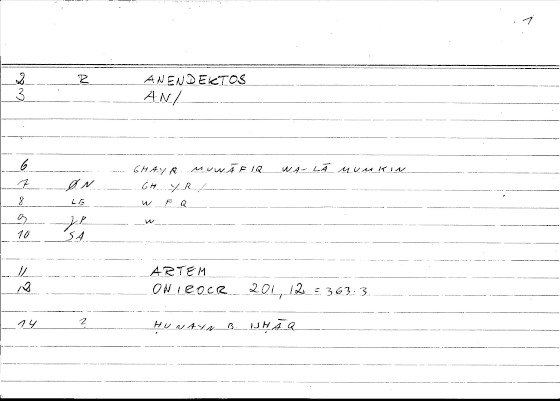 1
2 R ANENDEKTOS
3 AN/
6 GHAYR MUWĀFIQ WA-LĀ MUMKIN
7 ØN GH YR/
8 LE W F Q
9 JP W
10 SA
11 ARTEM
12 ONIROCR 201, 12 = 363.3
14 2 ḤUNAYN B ISḤĀQ